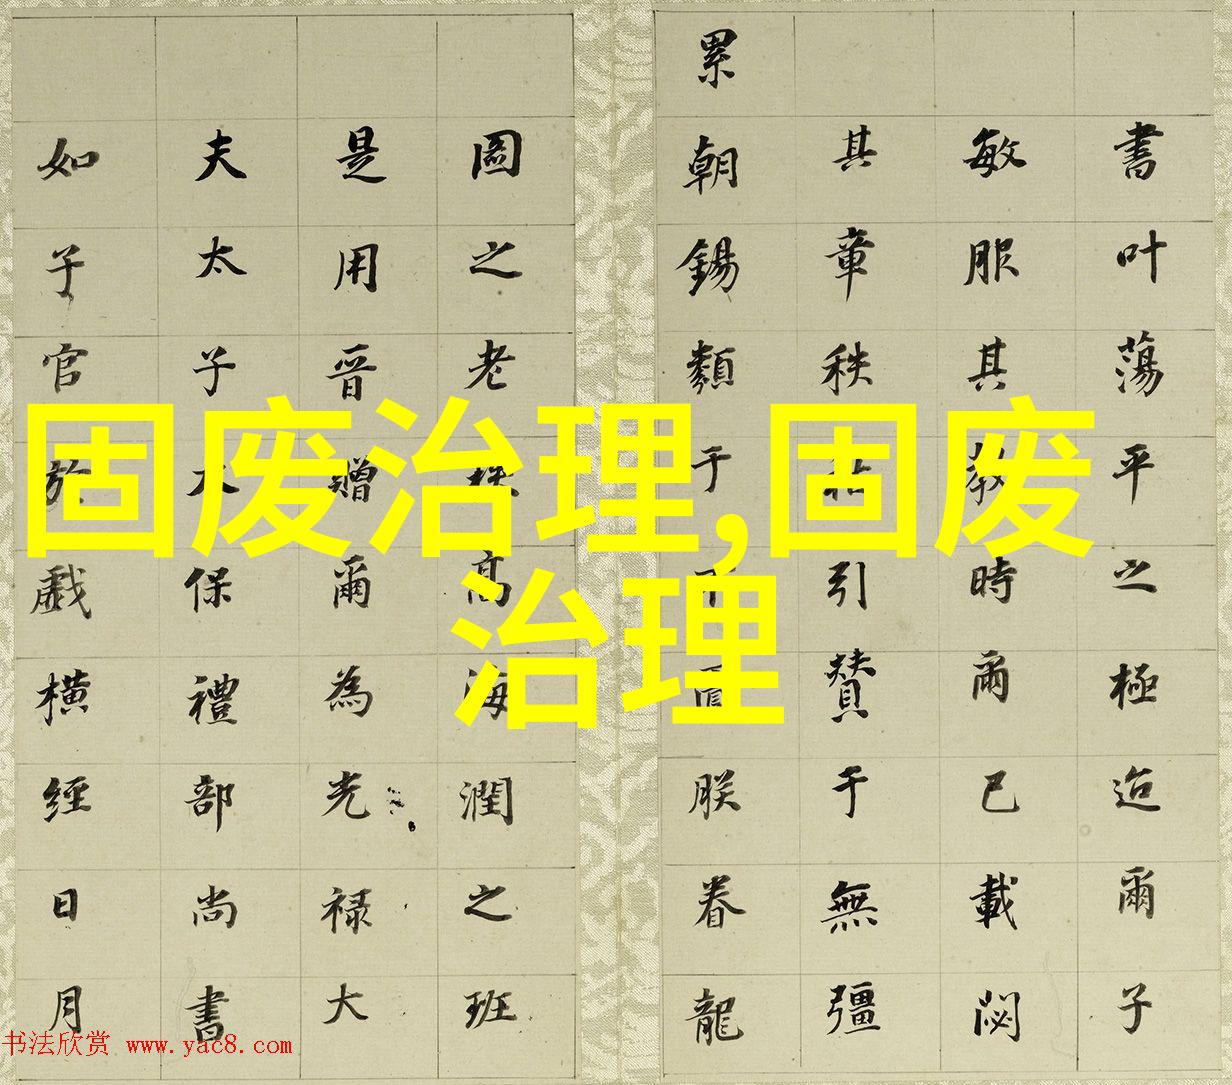 書叶蕩平之極迨爾子
敏服其教時爾已載閟
其章秩引贊于無彊
累朝錫類于朕眷龍
圖之老秩高海潤之班
是用晉贈爾為光禄大
夫太子太保禮部尚書
如子官於戲橫經日月
固废治理,固废
治理
书法欣赏 www.yac8.com